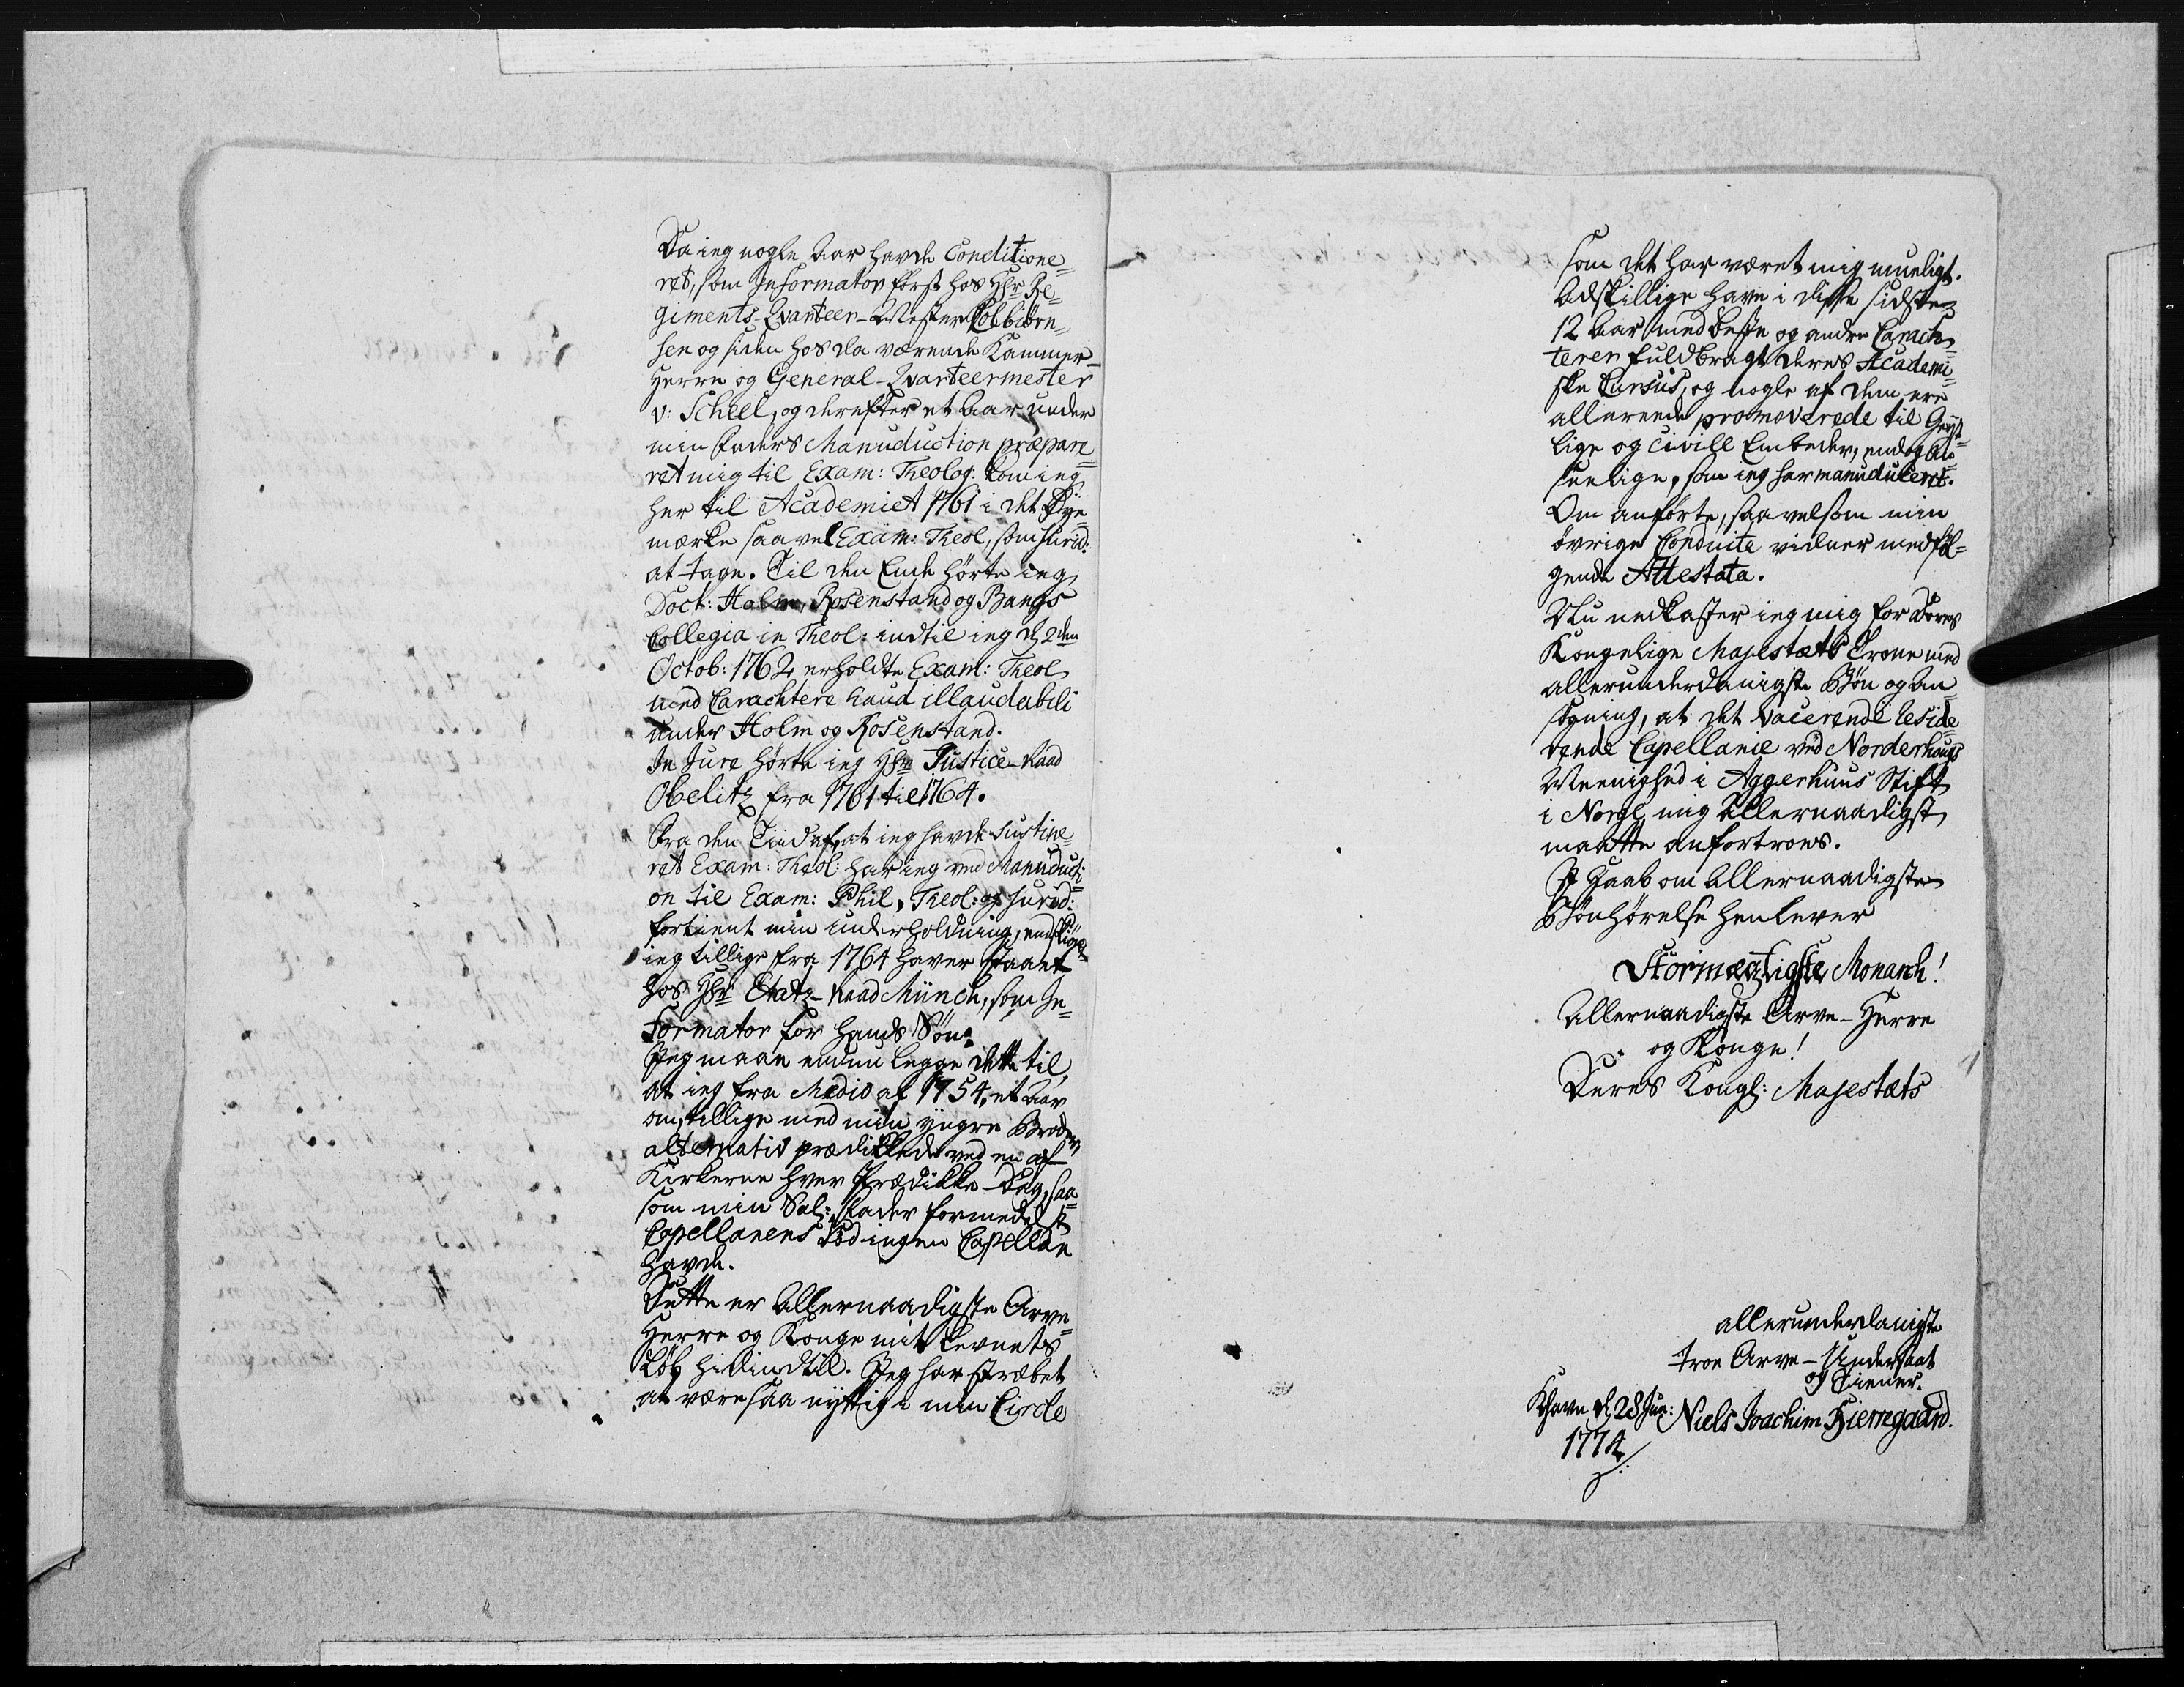 Da ieg nogle Aar havde Conditione=
ret, som Informator først hos Hr Re=
giments-Qvarteer-Mester Colbiørn=
sen og siden hos da værende Kammer-
Herre og General-Qvarteermester
v: Scheel, og derefter et Aar under
min Faders Manuduction præpare=
ret mig til Exam: Theolog: kom ieg
her til Academiet 1761 i det Øye=
mærke saavel Exam: Theol, som Jurid:
at tage. Til den Ende hørte ieg
Doct: Holm, Rosenstand og Bangs
Collegia in Theol: indtil ieg d, 2den
Octob: 1762 erholdte Exam: Theol
med Carachtere haud illaudabili
under Holm og Rosenstand.
In Jure hørte ieg Hr Justice-Raad
Obelitz fra 1761 til 1764.
Fra den Tiid af, at ieg havde sustine=
ret Exam: Theol: har ieg ved Manuducti=
on til Exam: Phil, Theol: og Jurid:
fortient min underholdning, endskiønt
ieg tillige fra 1764 haver staaet
hos Hr Etatz-Raad Münch, som In=
formator for hands Søn.
Jeg maae endnu legge dette til,
at ieg fra Medio af 1754, et Aar
omtillige med min yngre Broder,
alternativ prædikkede ved en af
Kirkerne hver Prædikke-Dag, saa=
som min Sal: Fader formedelst
Capellanens Død ingen Capellan
havde.
Dette er Allernaadigste Arve=
Herre og Konge mit Levnets
Løb hidindtil. Jeg har stræbet
at være saa nyttig i min Circle
som det har været mig mueligt.
Adskillige have i disse sidste
12 Aar med beste og andre Carach=
terer fuldbragt deres Academi=
ske Cursus, og nogle af dem ere
allereede promoverede til Geyst=
lige og Civile Embeder, endog An=
seelige, som ieg har manuducert.
Om anførte, saavelsom min
øvrige Conduite vidner medføl=
gende Attestata.
Nu nedkaster ieg mig for Deres
Kongelige Majestæts Trone med
allerunderdanigste Bøn og An=
søgning, at det vacerende reside=
rende Capellanie ved Norderhougs
Meenighed i Aggerhuus Stift
i Norge mig Allernaadigst
maatte anfortroes.
I Haab om Allernaadigste
Bønhørelse henlever
Stormægtigste Monarch!
Allernaadigste Arve-Herre
og Konge!
Deres Kongl: Majestæts
allerunderdanigste
troe Arve-Undersaat
og Tiener.
Khavn d, 28 Jun: Niels Joachim Hierregaard.
1774